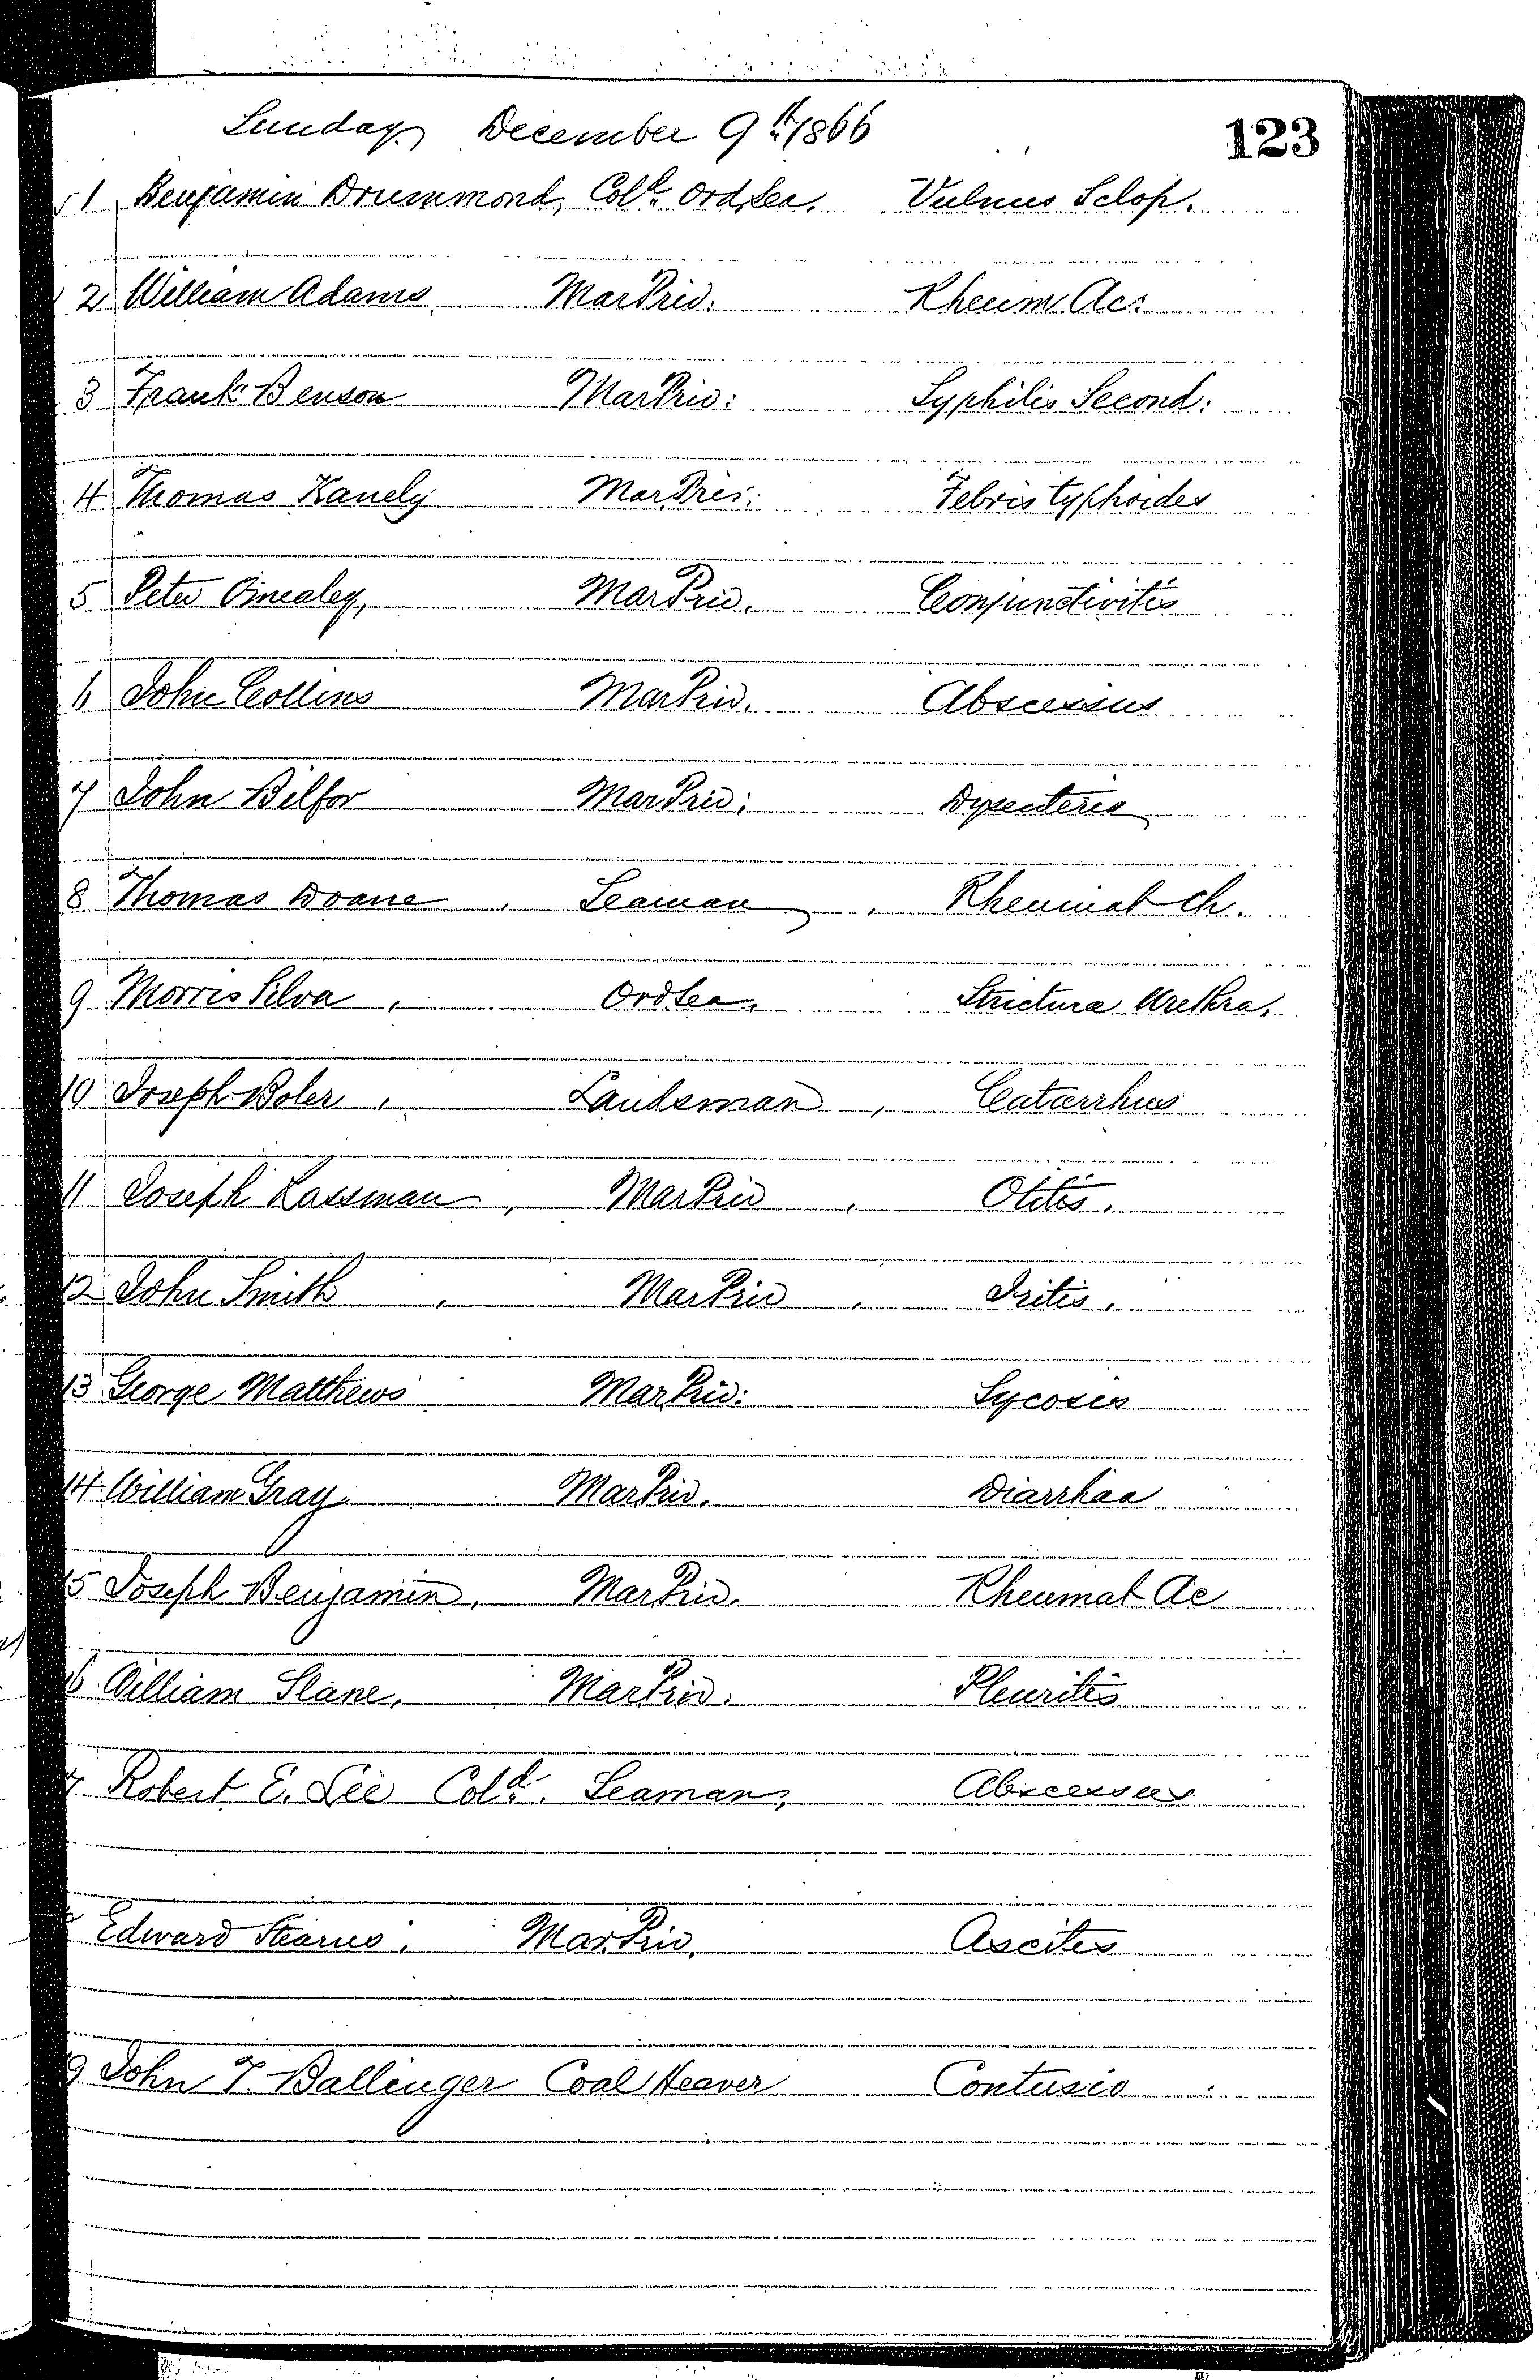 Sunday December 9th 1866
123
1 Benjamin Drummond, Cold. Ord, Sea. Vulnus Sclop.
2 William Adams Mar Priv: Rheum Ac:
3 Frank Benson Mar Priv: Syphilis Second:
4 Thomas Kanely Mar Priv: Febris typhoides
5 Peter Mar Priv. Conjunctivitis
6 John Collins Mar Priv. Abscessus
7 John Bilfor Mar Priv: Dysenteria
8 Thomas Doane, Seaman, Rheumat Ch.
9 Morris Silva, Ord Sea. Strictura Urethra.
10 Joseph Boler, Landsman, Catarrhus
11 Joseph Lassman, Mar Priv, Otitis.
12 John Smith, Mar Priv, Iritis.
13 George Matthews Mar Priv: Sycosis
14 William Gray Mar Priv. Diarrhaa
15 Joseph Benjamin, Mar Priv. Rheumat Ac
16 William Slane, Mar Priv. Pleuritis
7 Robert E. Lee Cold. Seaman, Abscessus
Edward Stearns, Mar. Priv. Ascites
9 John T. Ballinger Coal Heaver Contusio